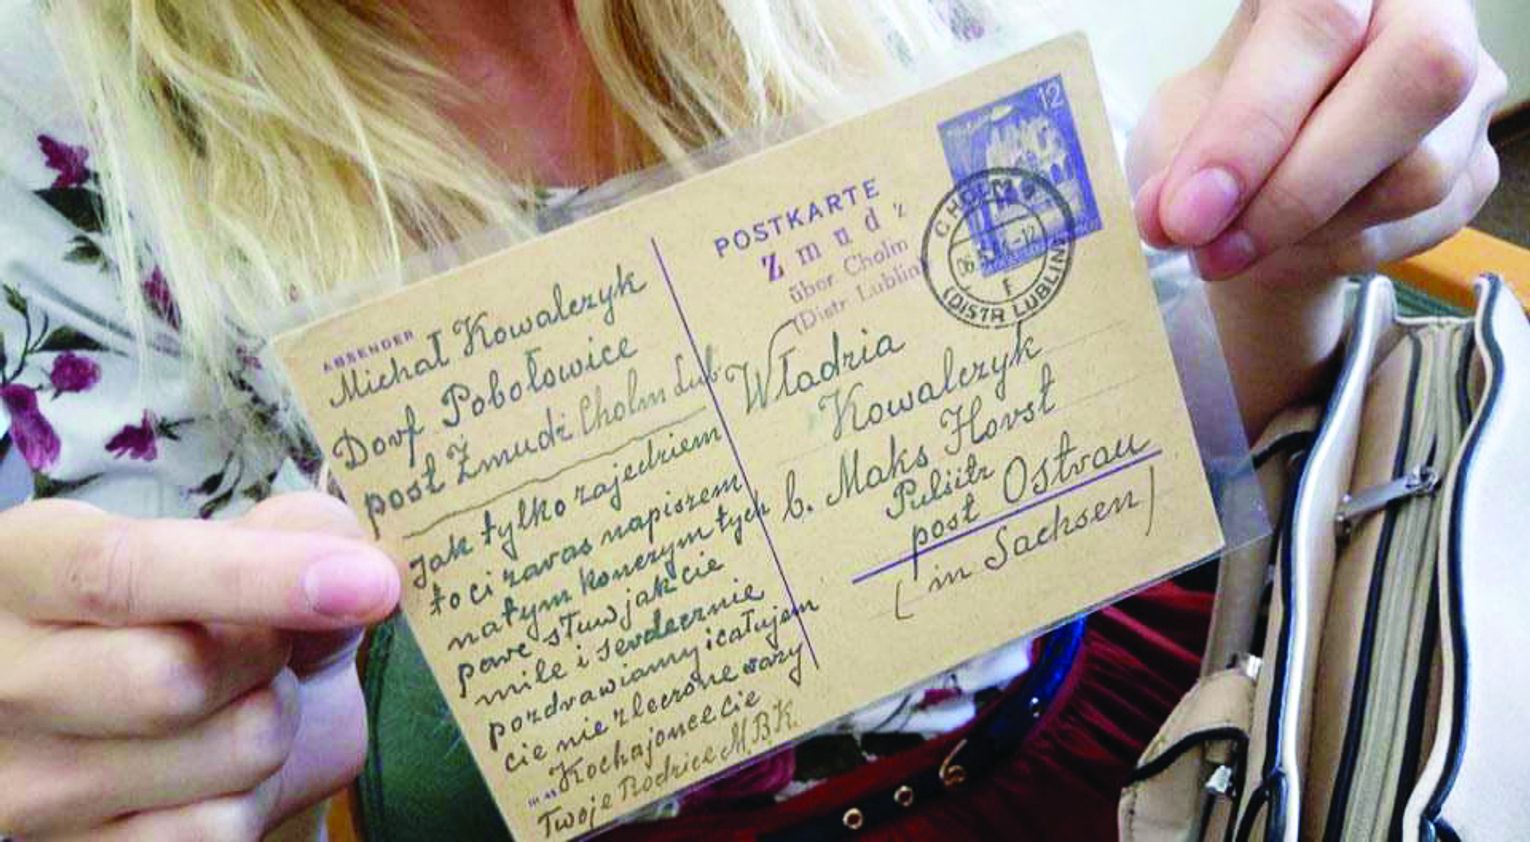 ABSENDER
Michał Kowalczyk
Dorf Pobołowice
post Żmudź Cholm Lub
Jak tylko zajedziem
to ci zaras napiszem
natym konczym tych
pare słuw jak cie
mile i serdecznie
pozdrawiamy i całujem
cie nie zleczone razy
Kochajonce cie
Twoje Rodzice M.B.K.
POSTKARTE
Zmudz
über Cholm
(Distr Lublin)
12
CHOLM
(DISTR LUBLIN)
Władzia
Kowalczyk
b. Maks Horst
Pulsitz
post Ostrau
(in Sachsen)